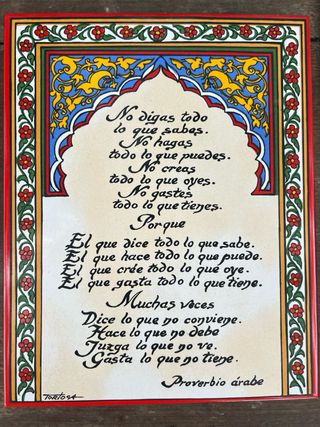 No digas todo
lo que sabes.
No hagas
todo lo que puedes.
No creas
todo lo que oyes.
No gastes
todo lo que tienes.
Porque
El que dice todo lo que sabe.
El que hace todo lo que puede.
El que crée todo lo que oye.
El que gasta todo lo que tiene.
Muchas veces
Dice lo que no conviene.
Hace lo que no debe
Juzga lo que no ve.
Gasta lo que no tiene.
Proverbio árabe
TORTOSA